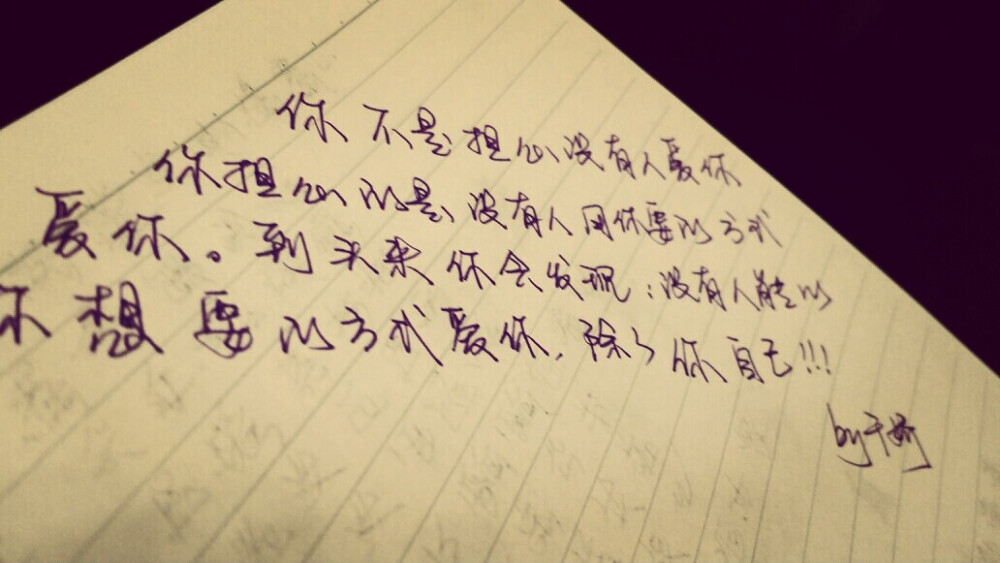 你不是担心没有人爱你
你担心的是没有人用你要的方式
爱你。到头来你会发现：没有人能以
你想要的方式爱你，除了你自己!!!
by千